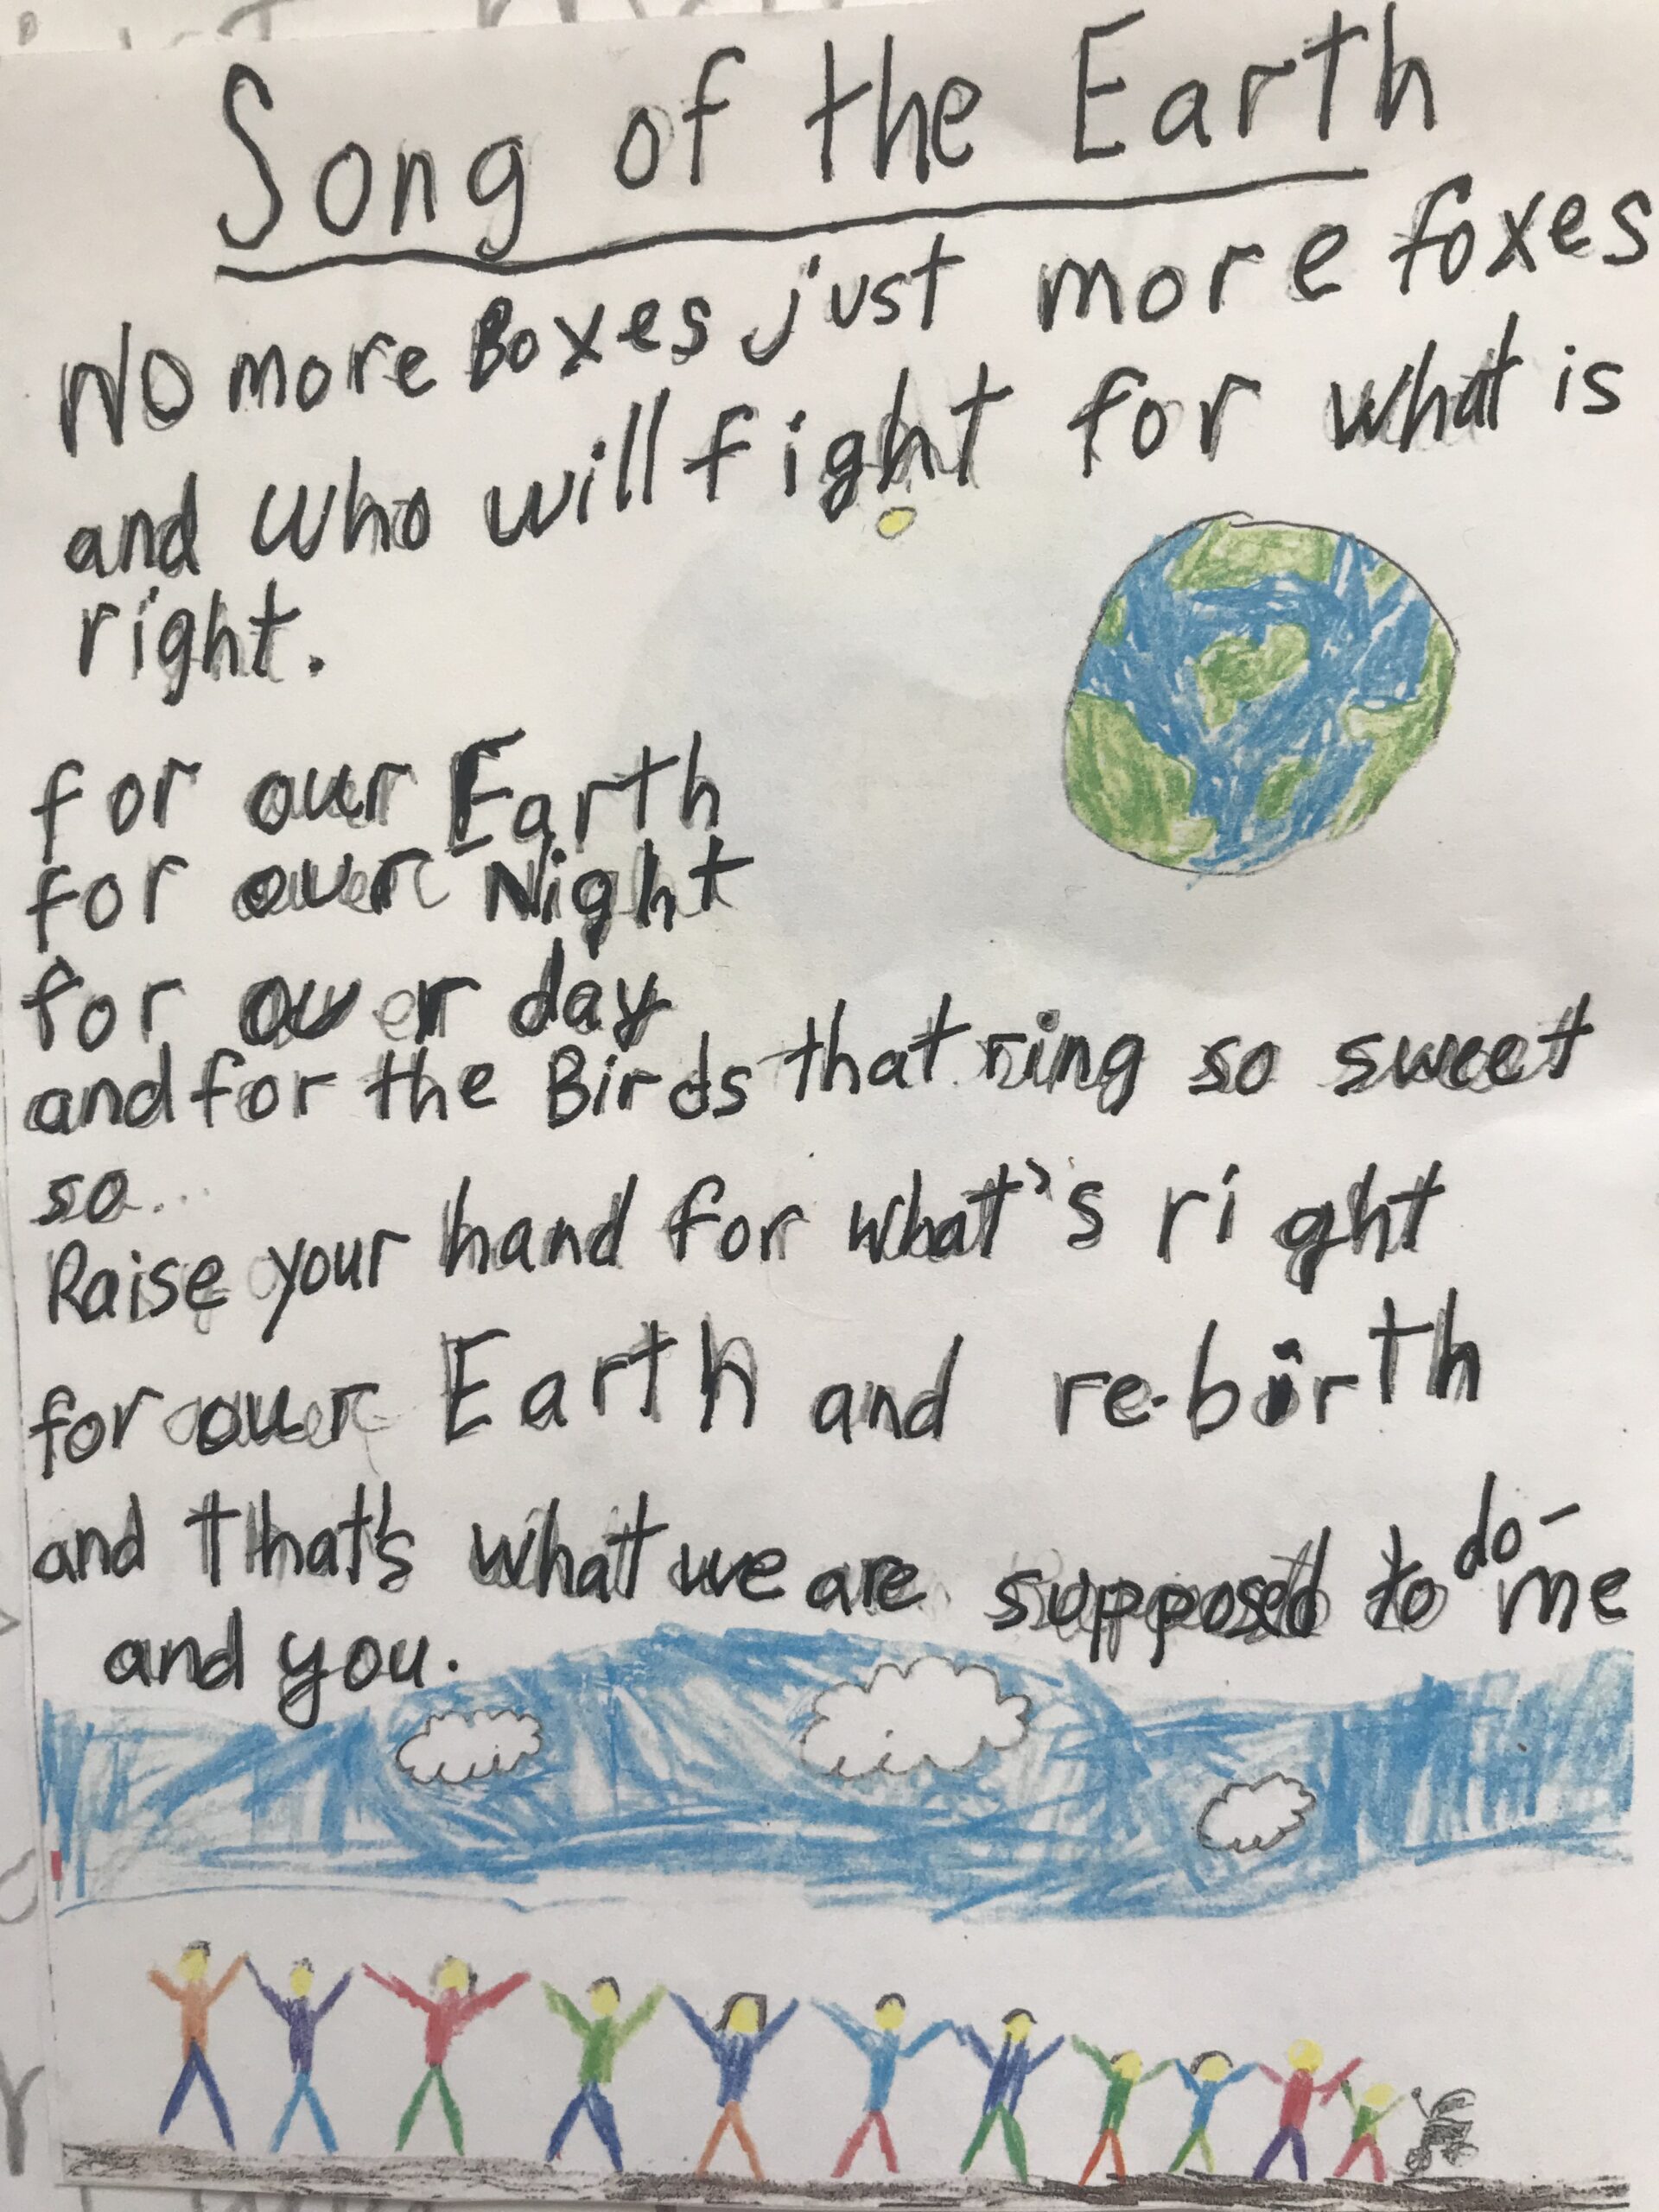 Song of the Earth
No more Boxes just more foxes
and who will fight for what is
right.
for our Earth
for our Night
for our day
and for the Birds that ring so sweet
so...
Raise your hand for what's right
for our Earth and re-birth
and that's what we are supposed to do- me
and you.